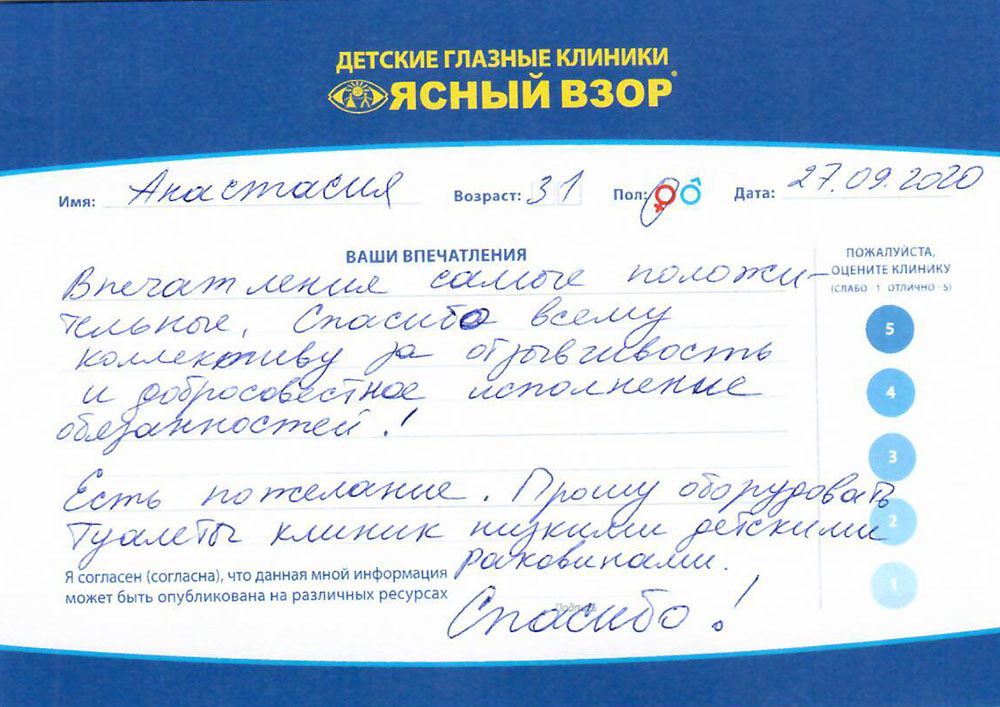 ДЕТСКИЕ ГЛАЗНЫЕ КЛИНИКИ
ЯСНЫЙ ВЗОР®
Имя: Анастасия Возраст: 31 Пол: Дата: 27.09.2020
ВАШИ ВПЕЧАТЛЕНИЯ
Впечатления самые положи-
тельные. Спасибо всему
коллективу за отзывчивость
и добросовестное исполнение
обязанностей!
Есть пожелание. Прошу оборудовать
туалеты клиник низкими детскими
раковинами.
Спасибо!
Я согласен (согласна), что данная мной информация
может быть опубликована на различных ресурсах
Подпись
ПОЖАЛУЙСТА,
ОЦЕНИТЕ КЛИНИКУ
(СЛАБО - 1 ОТЛИЧНО - 5)
5
4
3
2
1